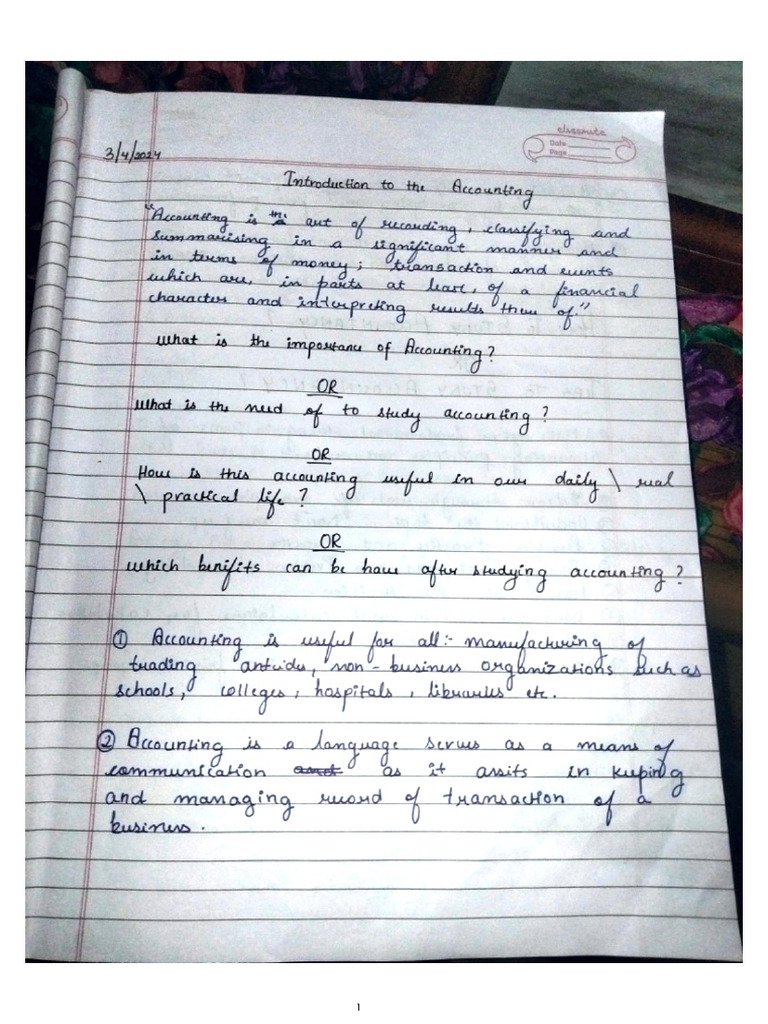 classmate
Date
Page
3/4/2024
Introduction to the Accounting
"Accounting is the art of recording, classifying and
summarising in a significant manner and
in terms of money; transaction and events
which are, in parts at least, of a financial
character and interpreting results there of"
What is the importance of Accounting?
OR
What is the need of to study accounting?
OR
How is this accounting useful in our daily \ real
\ practical life?
OR
which benifits can be have after studying accounting?
① Accounting is useful for all:- manufacturing of
trading, non-business organizations such as
schools, colleges, hospitals, libraries etc.
② Accounting is a language serves as a means of
communication as it assits in keeping
and managing record of transaction of a
business.
1